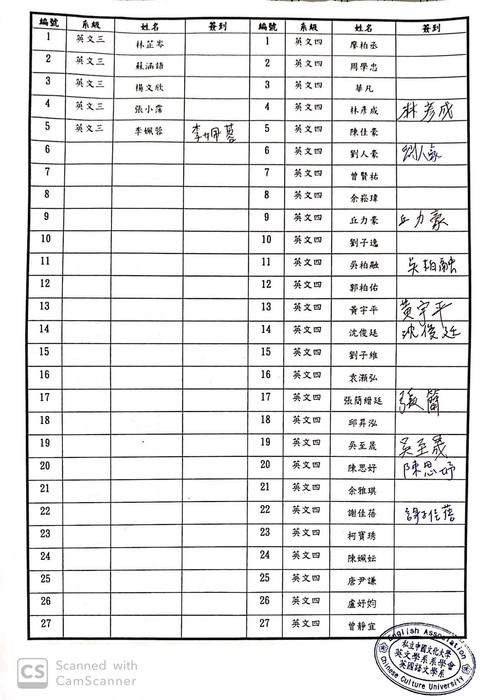 編號 系級 姓名 簽到 編號 系級 姓名 簽到
1 英文三 林芷岑 1 英文四 廖柏丞
2 英文三 蘇涵語 2 英文四 周學忠
3 英文三 楊文欣 3 英文四 華凡
4 英文三 張小霈 4 英文四 林彥成 林彥成
5 英文三 李姵蓉 李姵蓉 5 英文四 陳佳豪
6 6 英文四 劉人豪 劉人豪
7 7 英文四 曾賢祐
8 8 英文四 余崧瑋
9 9 英文四 丘力豪 丘力豪
10 10 英文四 劉子逸
11 11 英文四 吳柏融 吳柏融
12 12 英文四 郭柏佑
13 13 英文四 黃宇平 黃宇平
14 14 英文四 沈俊廷 沈俊廷
15 15 英文四 劉子維
16 16 英文四 袁灝弘
17 17 英文四 張簡縉廷 張簡
18 18 英文四 邱昇泓
19 19 英文四 吳至晟 吳至晟
20 20 英文四 陳思妤 陳思妤
21 21 英文四 余雅琪
22 22 英文四 謝佳蓓 謝佳蓓
23 23 英文四 柯寶琇
24 24 英文四 陳姵妘
25 25 英文四 唐尹謙
26 26 英文四 盧妤灼
27 27 英文四 曾靜宜
English Association
私立中國文化大學
英文學系系學會
英國語文學系
Chinese Culture University
CS Scanned with
CamScanner